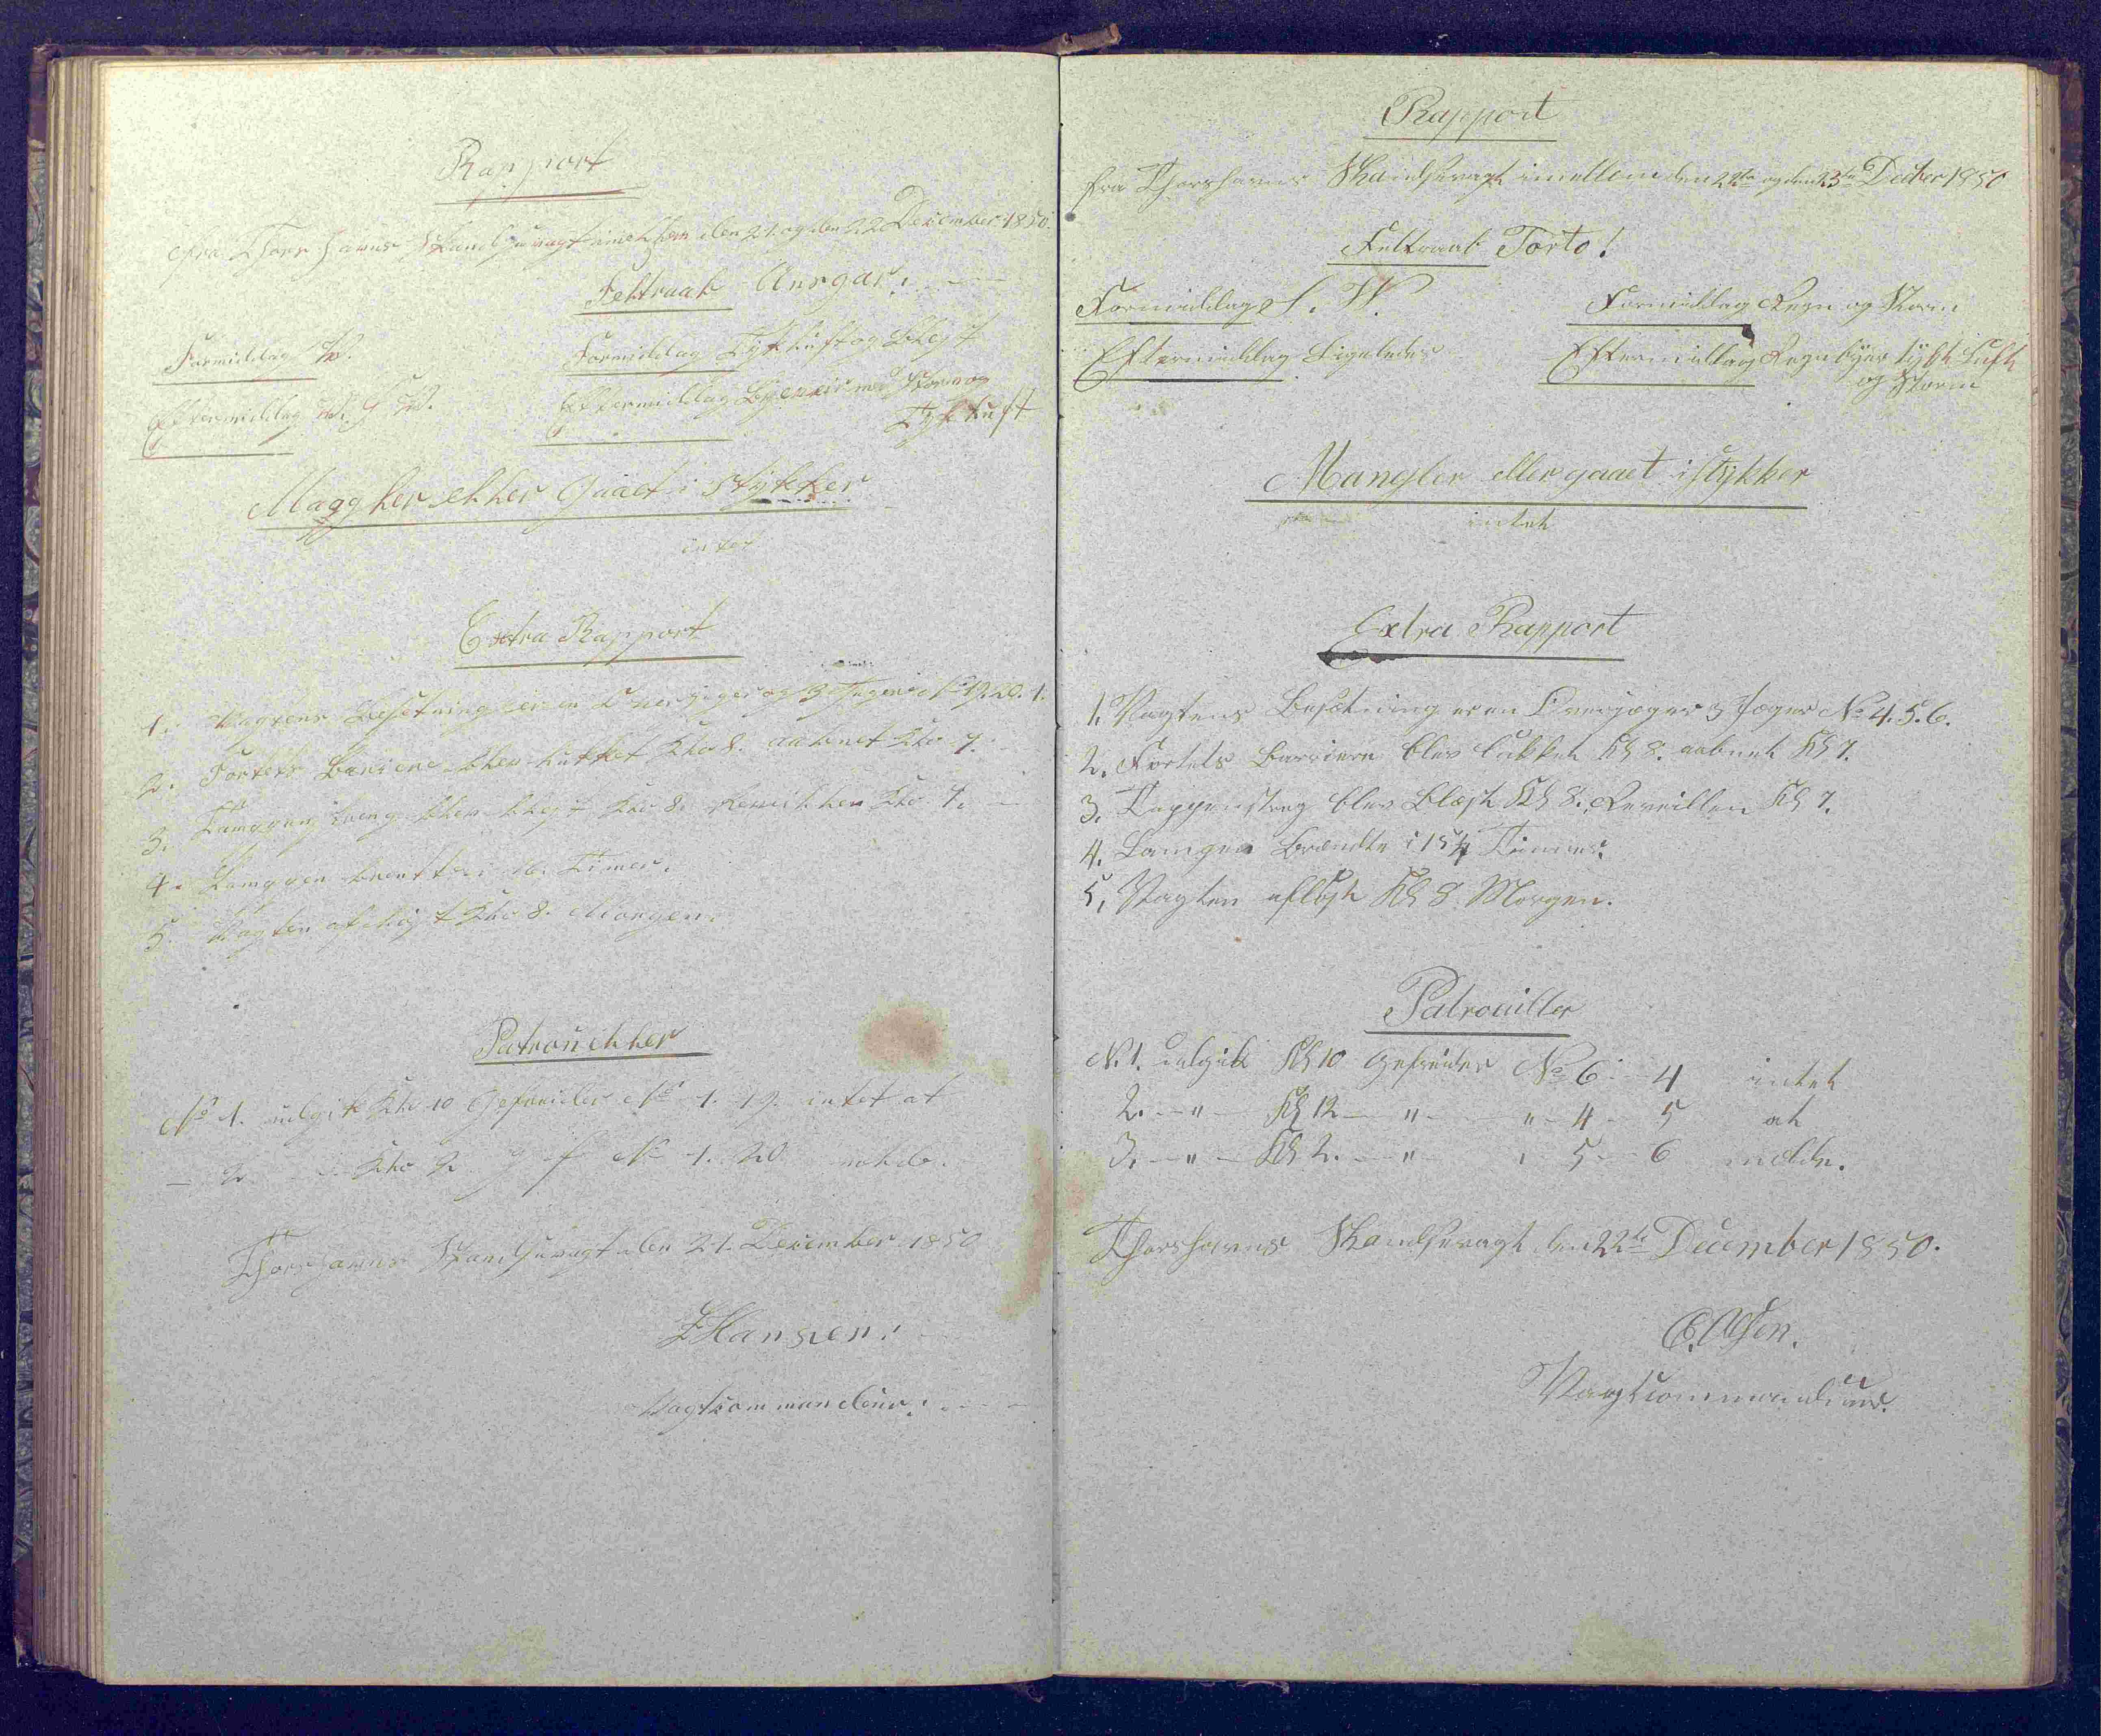 Rapport
fra Thorshavns Skandsevagt imellem den 21 og den 22 December 1850.
Feltraab Ansgar.
Formiddag W. Formiddag Tyk Luft og Blæst
Eftermiddag W. S. W. Eftermiddag Ligeviis med Storm og
Tyk Luft
Mangler eller Gaaet i Stykker
intet
Extra Rapport
1. Vagtens Besetning er en Overjeger og 3 Jegere No 19. 20. 1.
2. Fortets Bariere blev lukket Klo 8. aabnet Klo 7.
3. Tampen streg blev blest Klo 8. Revillen Klo 7.
4. Lampen brentte i 16 Timer.
5. Vagten afløst Klo 8. Morgen.
Patrouiller
No 1. udgik Klo 10 Gefreider No 1. 19. intet at
– 2 – Klo 2 G f No 1. 20 melde.
Thorshavns Skandsevagt den 21. December 1850
Hansen.
Vagtkommandeur.
Rapport
fra Thorshavns Skandsevagt imellem den 22de og den 23de Decber 1850
Feltraab Torto!
Formiddag S. W. Formiddag Regn og Storm
Eftermiddag Ligeledes Eftermiddag Regnbyer tykt Luft
og Storm
Mangler eller gaaet i stykker
intet
Extra Rapport
1. Vagtens Besætning er en Overjæger 3 Jæger No 4. 5. 6.
2. Fortets Barriere blev lukket Kl 8. aabnet Kl 7.
3. Tappenstreg blev Blæst Kl 8. Reveillen Kl 7.
4. Lampen Brændte i 15¼ Timer.
5. Vagten afløst Kl 8 Morgen.
Patrouiller
N. 1. udgik Kl 10 Gefreider No 6 – 4 intet
2. – " – Kl 12 – " – " – 4 – 5 at
3. – " – Kl 2. – " – 5 – 6 melde.
Thorshavns Skandsevagt den 22de December 1850.
Olsen.
Vagtcommandeur.